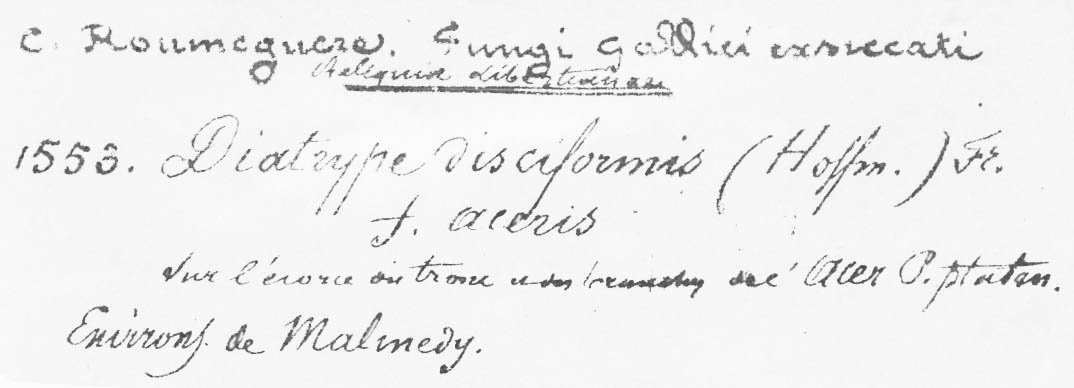 C. Roumeguere. Fungi Gallici exsiccati
Reliquiæ Libertianæ
1553. Diatrype disciformis (Hoffm.) Fr.
f. Aceris
Sur l'écorce du tronc et des branches de l'Acer P. platan.
Environs de Malmedy.